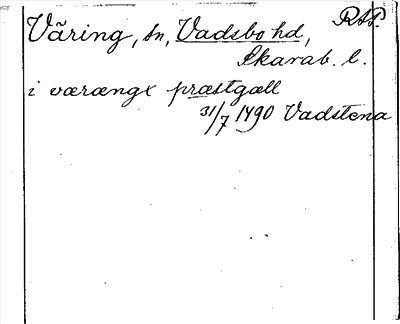 Väring, sn, Vadsbo hd, RAP.
Skarab. l.
i værængx præstgæll
31/7 1490 Vadstena